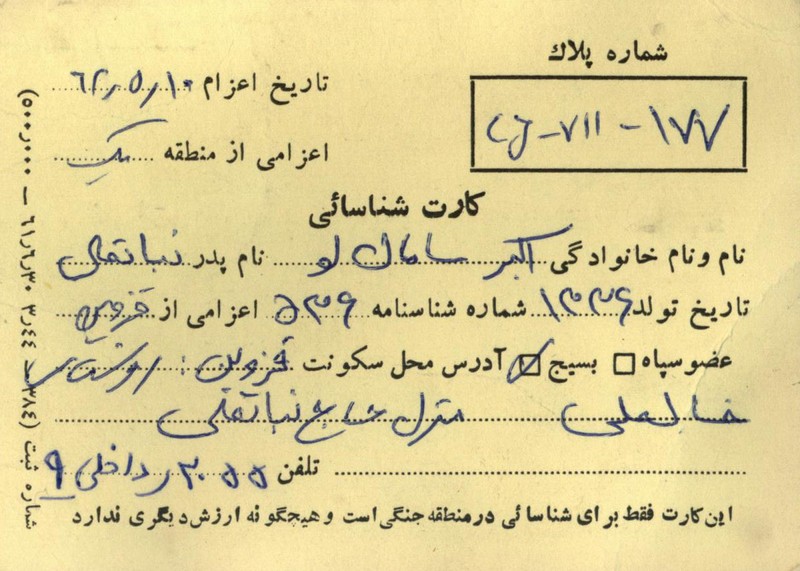 شماره پلاک
CJ-۷۱۱-۱۷۷
تاریخ اعزام ۶۲٫۵٫۱۰
اعزامی از منطقه یک
کارت شناسائی
نام ونام خانوادگی اکبر سامان لو نام پدر نباتعلی
تاریخ تولد ۱۳۳۶ شماره شناسنامه ۵۳۶ اعزامی از قزوین
عضو سپاه بسیج آدرس محل سکونت قزوین: روستای
منزل نباتعلی
تلفن ۳۰۵۵ داخلی ۹
این کارت فقط برای شناسائی در منطقه جنگی است و هیچگونه ارزش دیگری ندارد
شماره ثبت (۳۸۴ ـ ۳٫۴۴ ۶۱٫۶٫۳۰ ـ ۵۰۰٫۰۰۰)